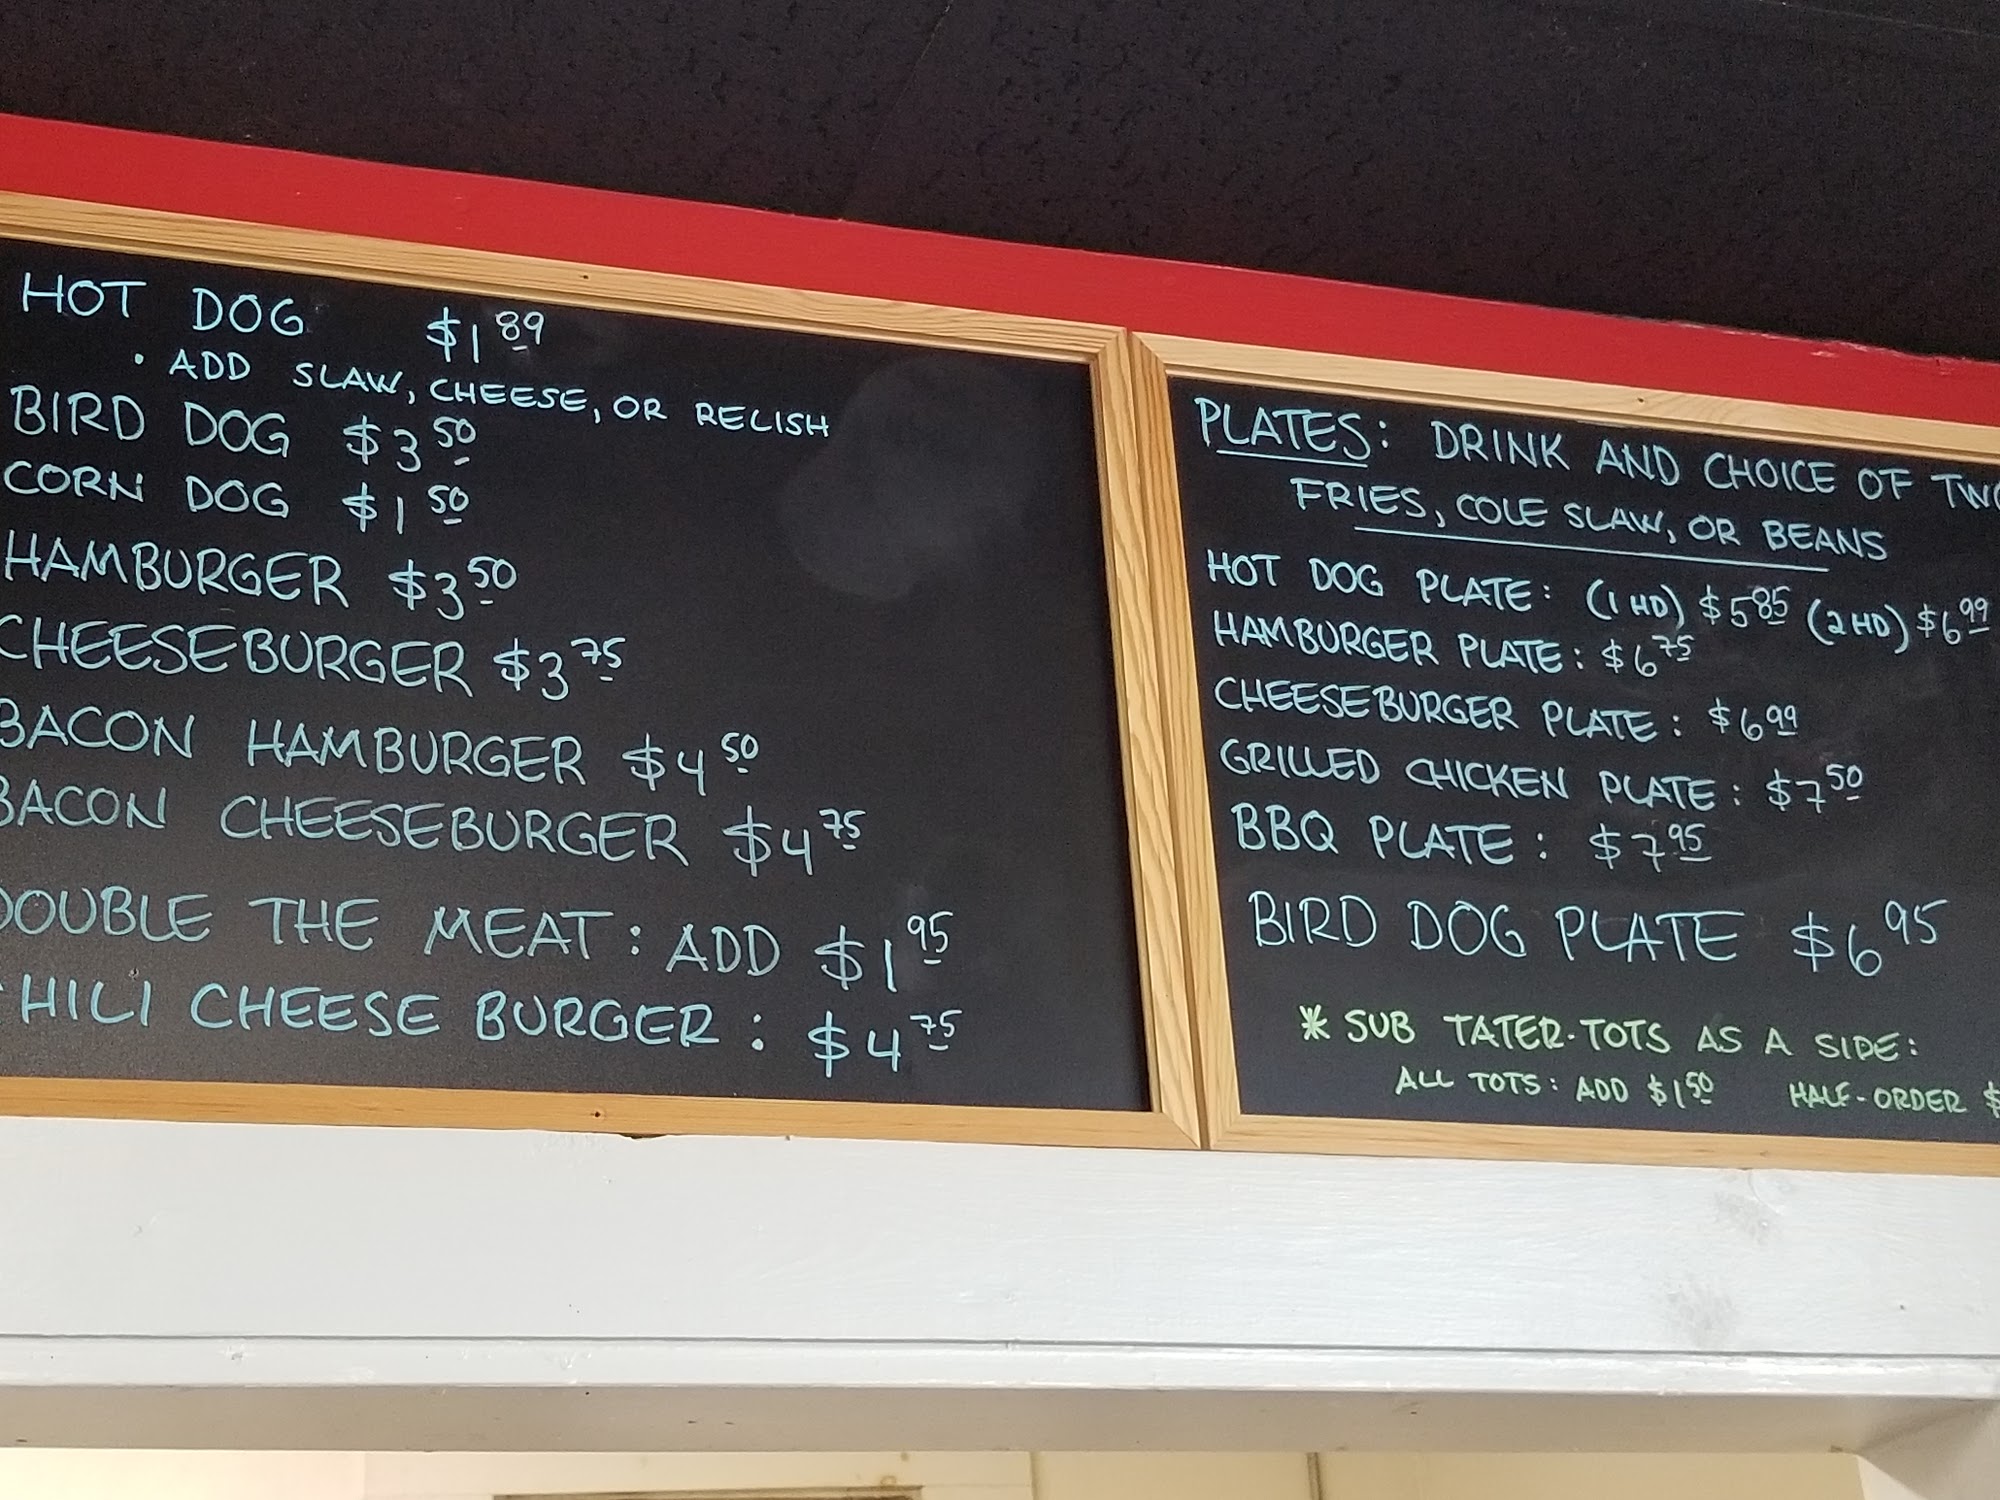 HOT DOG $1.89
• ADD SLAW, CHEESE, OR RELISH
BIRD DOG $3.50
CORN DOG $1.50
HAMBURGER $3.50
CHEESEBURGER $3.75
BACON HAMBURGER $4.50
BACON CHEESEBURGER $4.75
DOUBLE THE MEAT: ADD $1.95
CHILI CHEESE BURGER: $4.75
PLATES: DRINK AND CHOICE OF TWO
FRIES, COLE SLAW, OR BEANS
HOT DOG PLATE: (1 HD) $5.85 (2 HD) $6.99
HAMBURGER PLATE: $6.75
CHEESEBURGER PLATE: $6.99
GRILLED CHICKEN PLATE: $7.50
BBQ PLATE: $7.95
BIRD DOG PLATE $6.95
* SUB TATER-TOTS AS A SIDE:
ALL TOTS: ADD $1.50 HALF-ORDER $